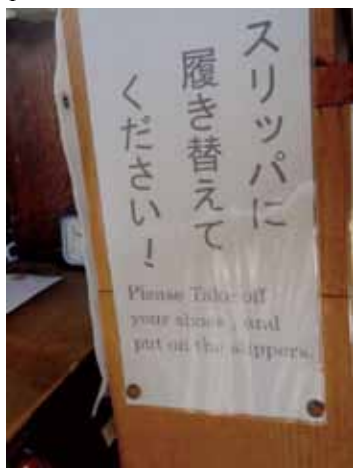 スリッパに
履き替えて
ください！
Please Take off
your shoes, and
put on the slippers.